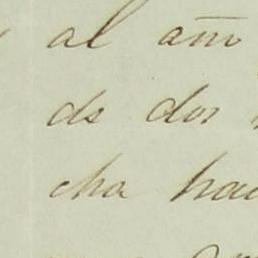 al año
ds dos
cha hac